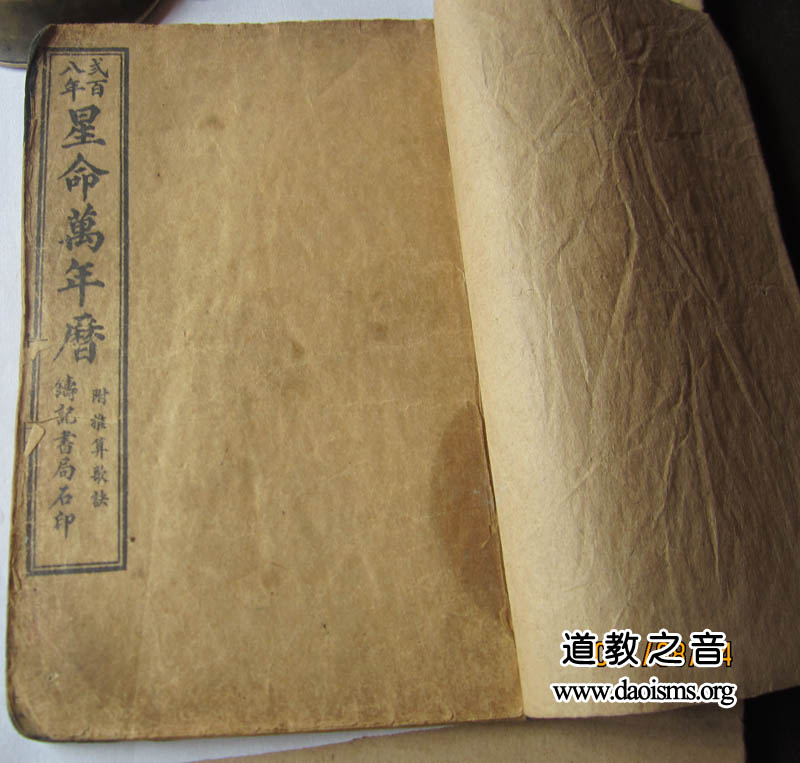 弍百
八年
星命萬年曆
附推算歌訣
鑄記書局石印
道教之音
www.daoisms.org